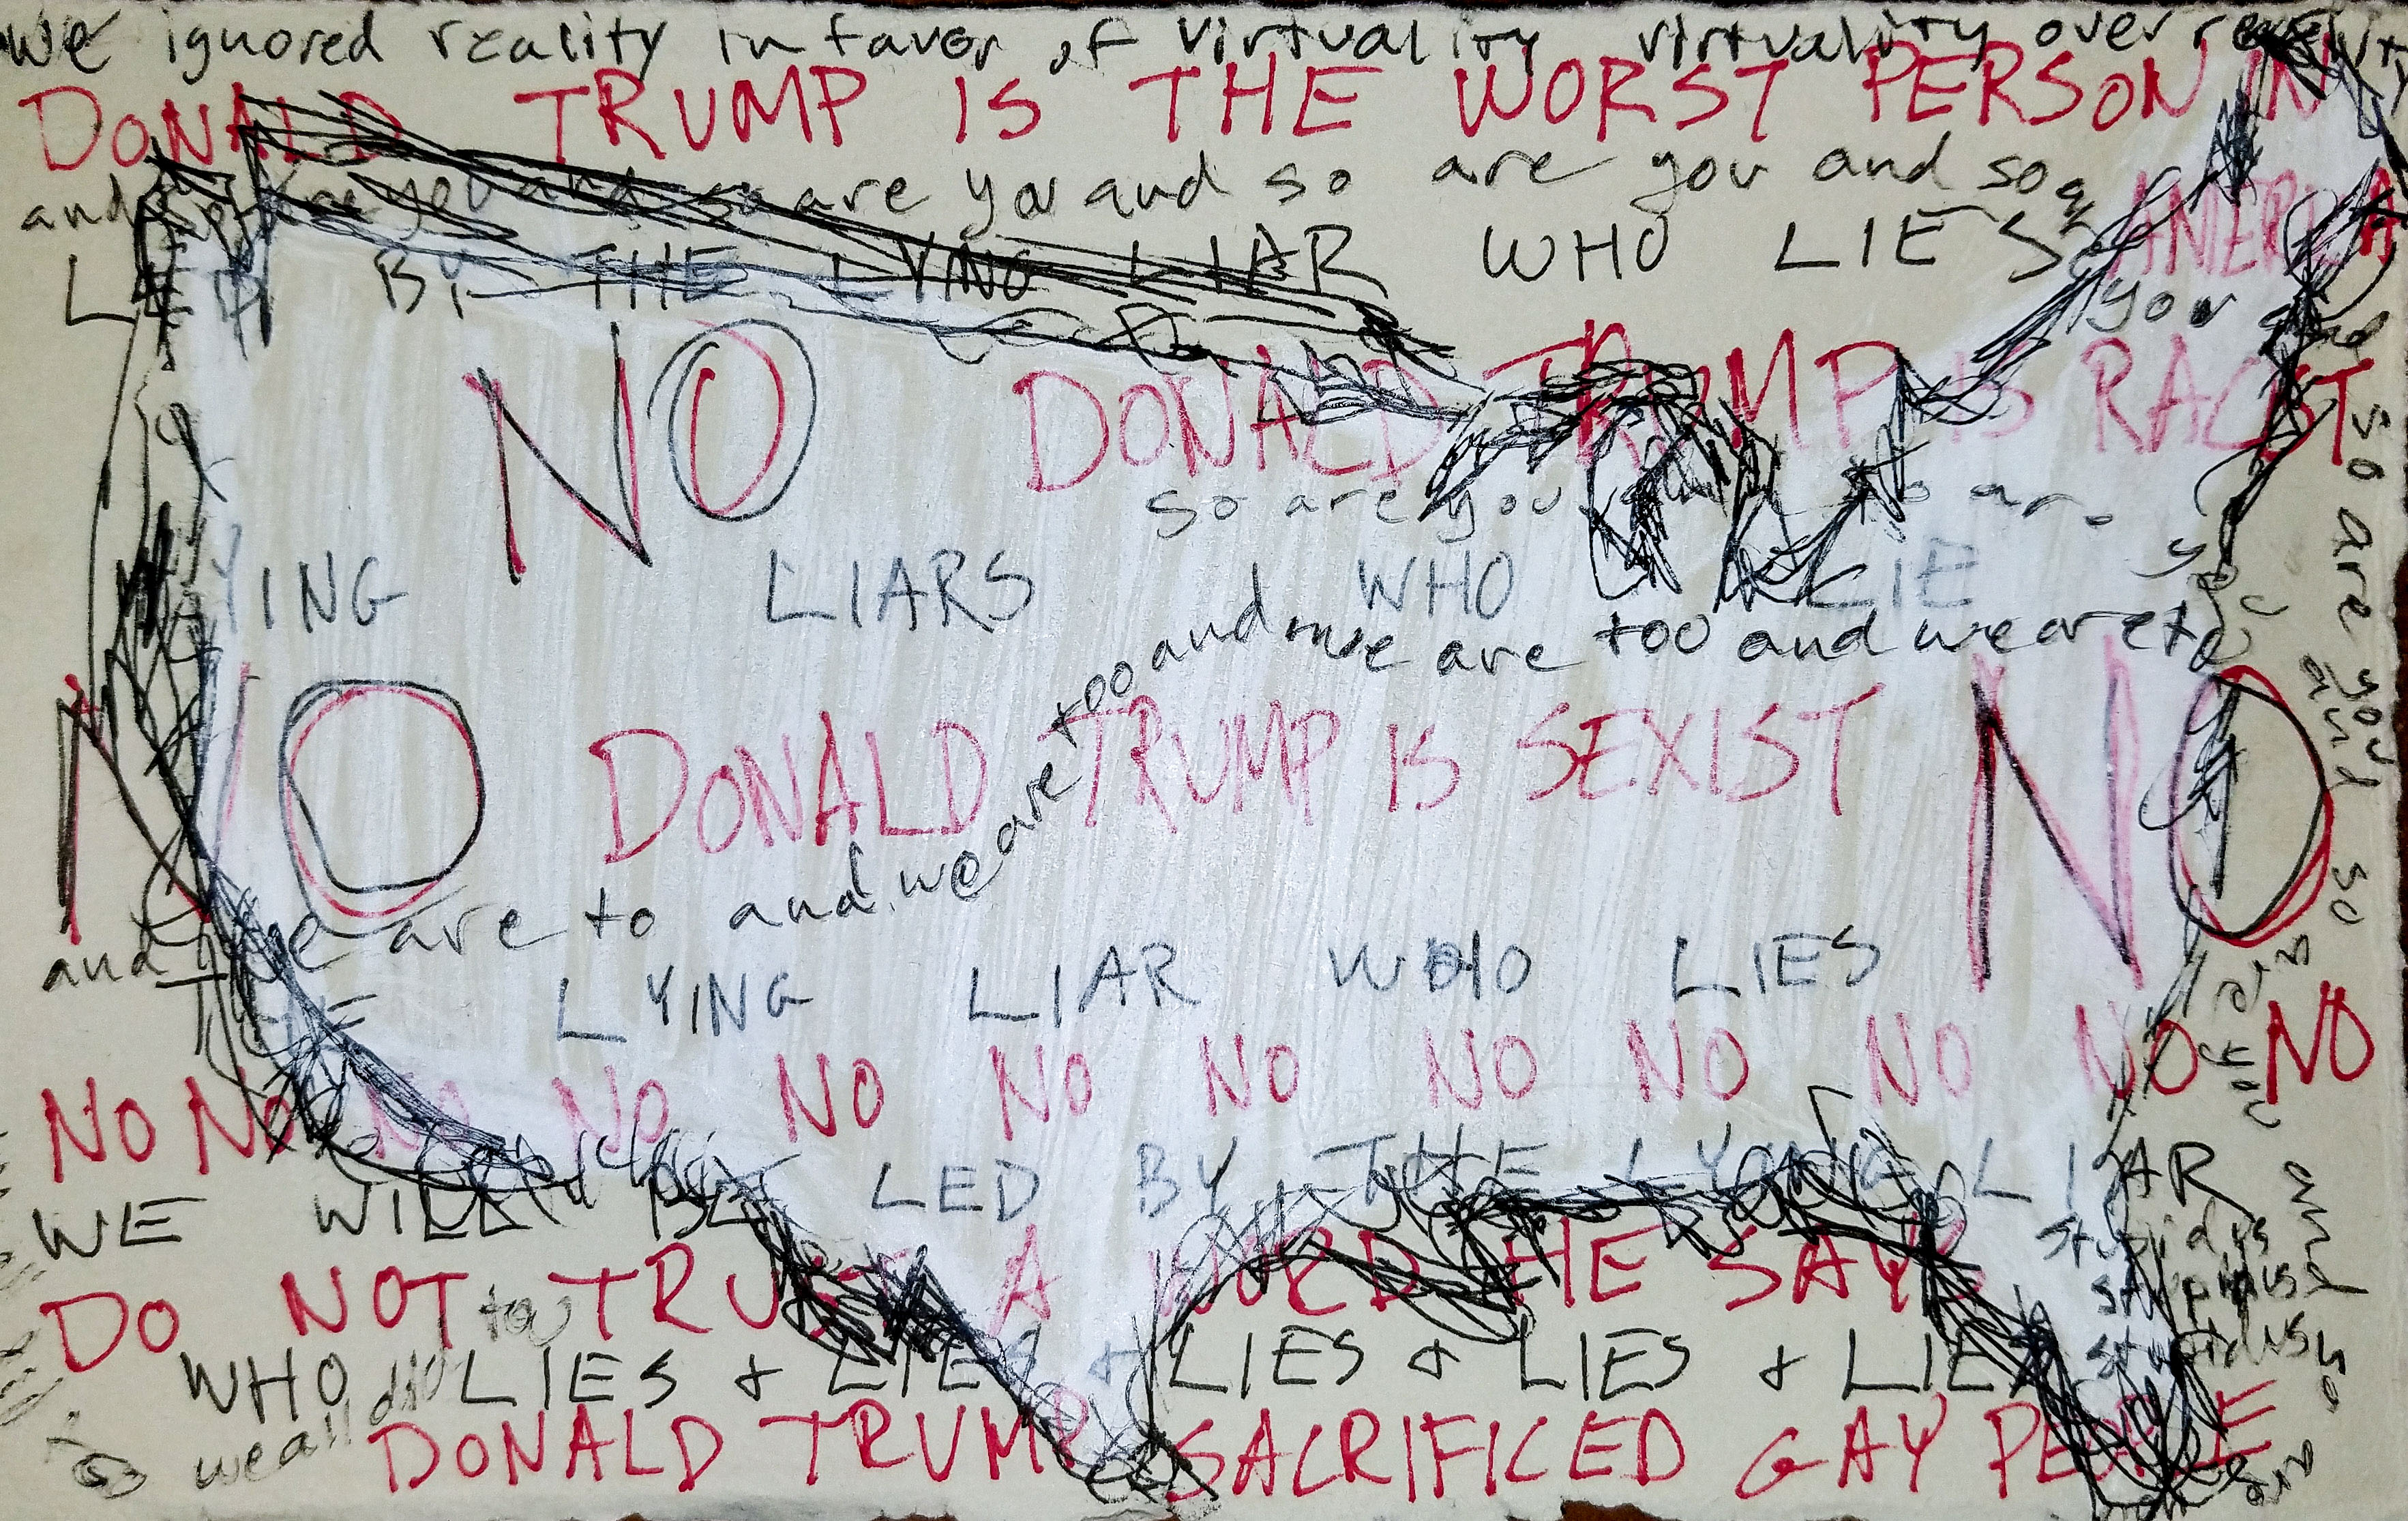 We ignored reality in favor of virtuality virtuality over
DONALD TRUMP IS THE WORST PERSON IN
and so are you and so are you and so are you and so
AMERICA
LED BY THE LYING LIAR WHO LIES
you
NO DONALD TRUMP IS RACIST
so are you so are
LYING LIARS WHO LIE
and we are to and we are too and we are too and we are to
NO DONALD TRUMP IS SEXIST NO
THE LYING LIAR WHO LIES
NO NO NO NO NO NO NO NO NO NO NO NO
WE WILL BE LED BY THE LYING LIAR
DO NOT TRUST A WORD HE SAYS
WHO LIES + LIES + LIES + LIES + LIES
we all did
DONALD TRUMP SACRIFICED GAY PEOPLE
so are you and so are you
stupid is